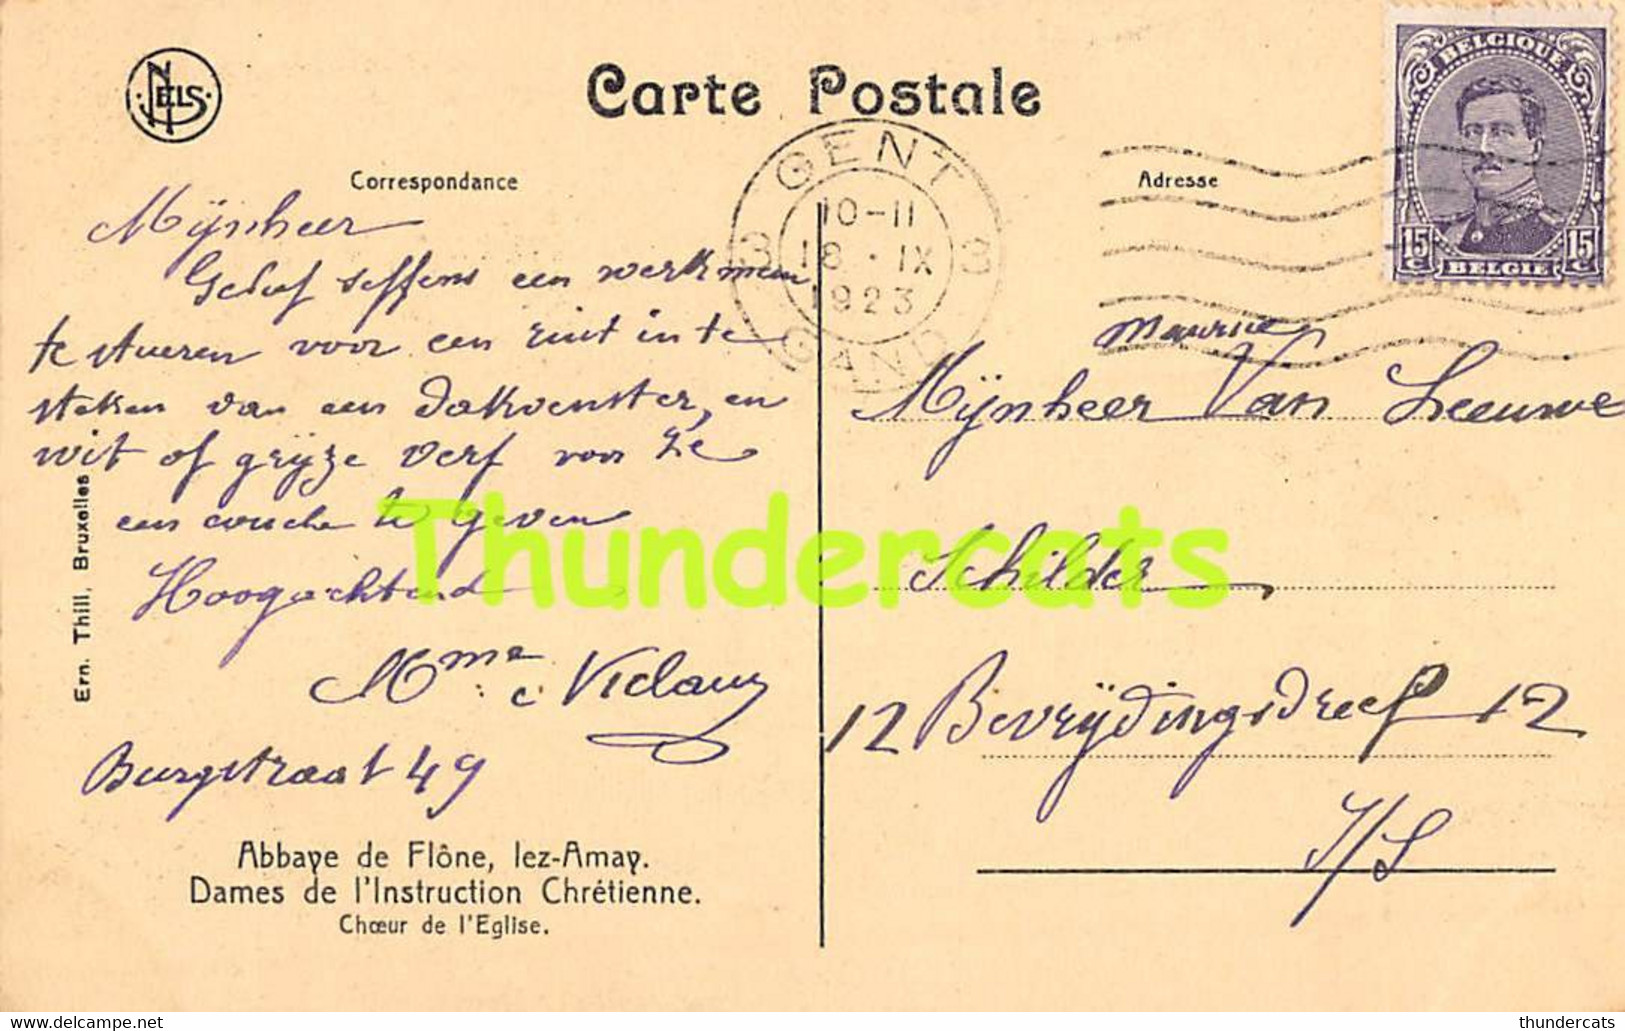 NELS
Carte Postale
BELGIQUE
15 c 15 c
BELGIE
GENT
3 3
10-11
18 · IX
1923
GAND
Correspondance
Adresse
Mijnheer
Gelief seffens een werkman
te stueren voor een ruit in te
steken van een dakvenster, en
wit of grijze verf voor ze
een couche te geven
Hoogachtend
Mme
Burgstraat 49
Maurice
Mijnheer Van Leeuwe
Schilder
12 Bevrijdingsdreef 12
Ern. Thill, Bruxelles
Abbaye de Flône, lez-Amay.
Dames de l'Instruction Chrétienne.
Chœur de l'Eglise.
Thundercats
thundercats
delcampe.net